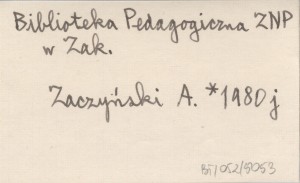 Biblioteka Pedagogiczna ZNP
w Zak.
Zaczyński A. *1980 j
BT/052/5053